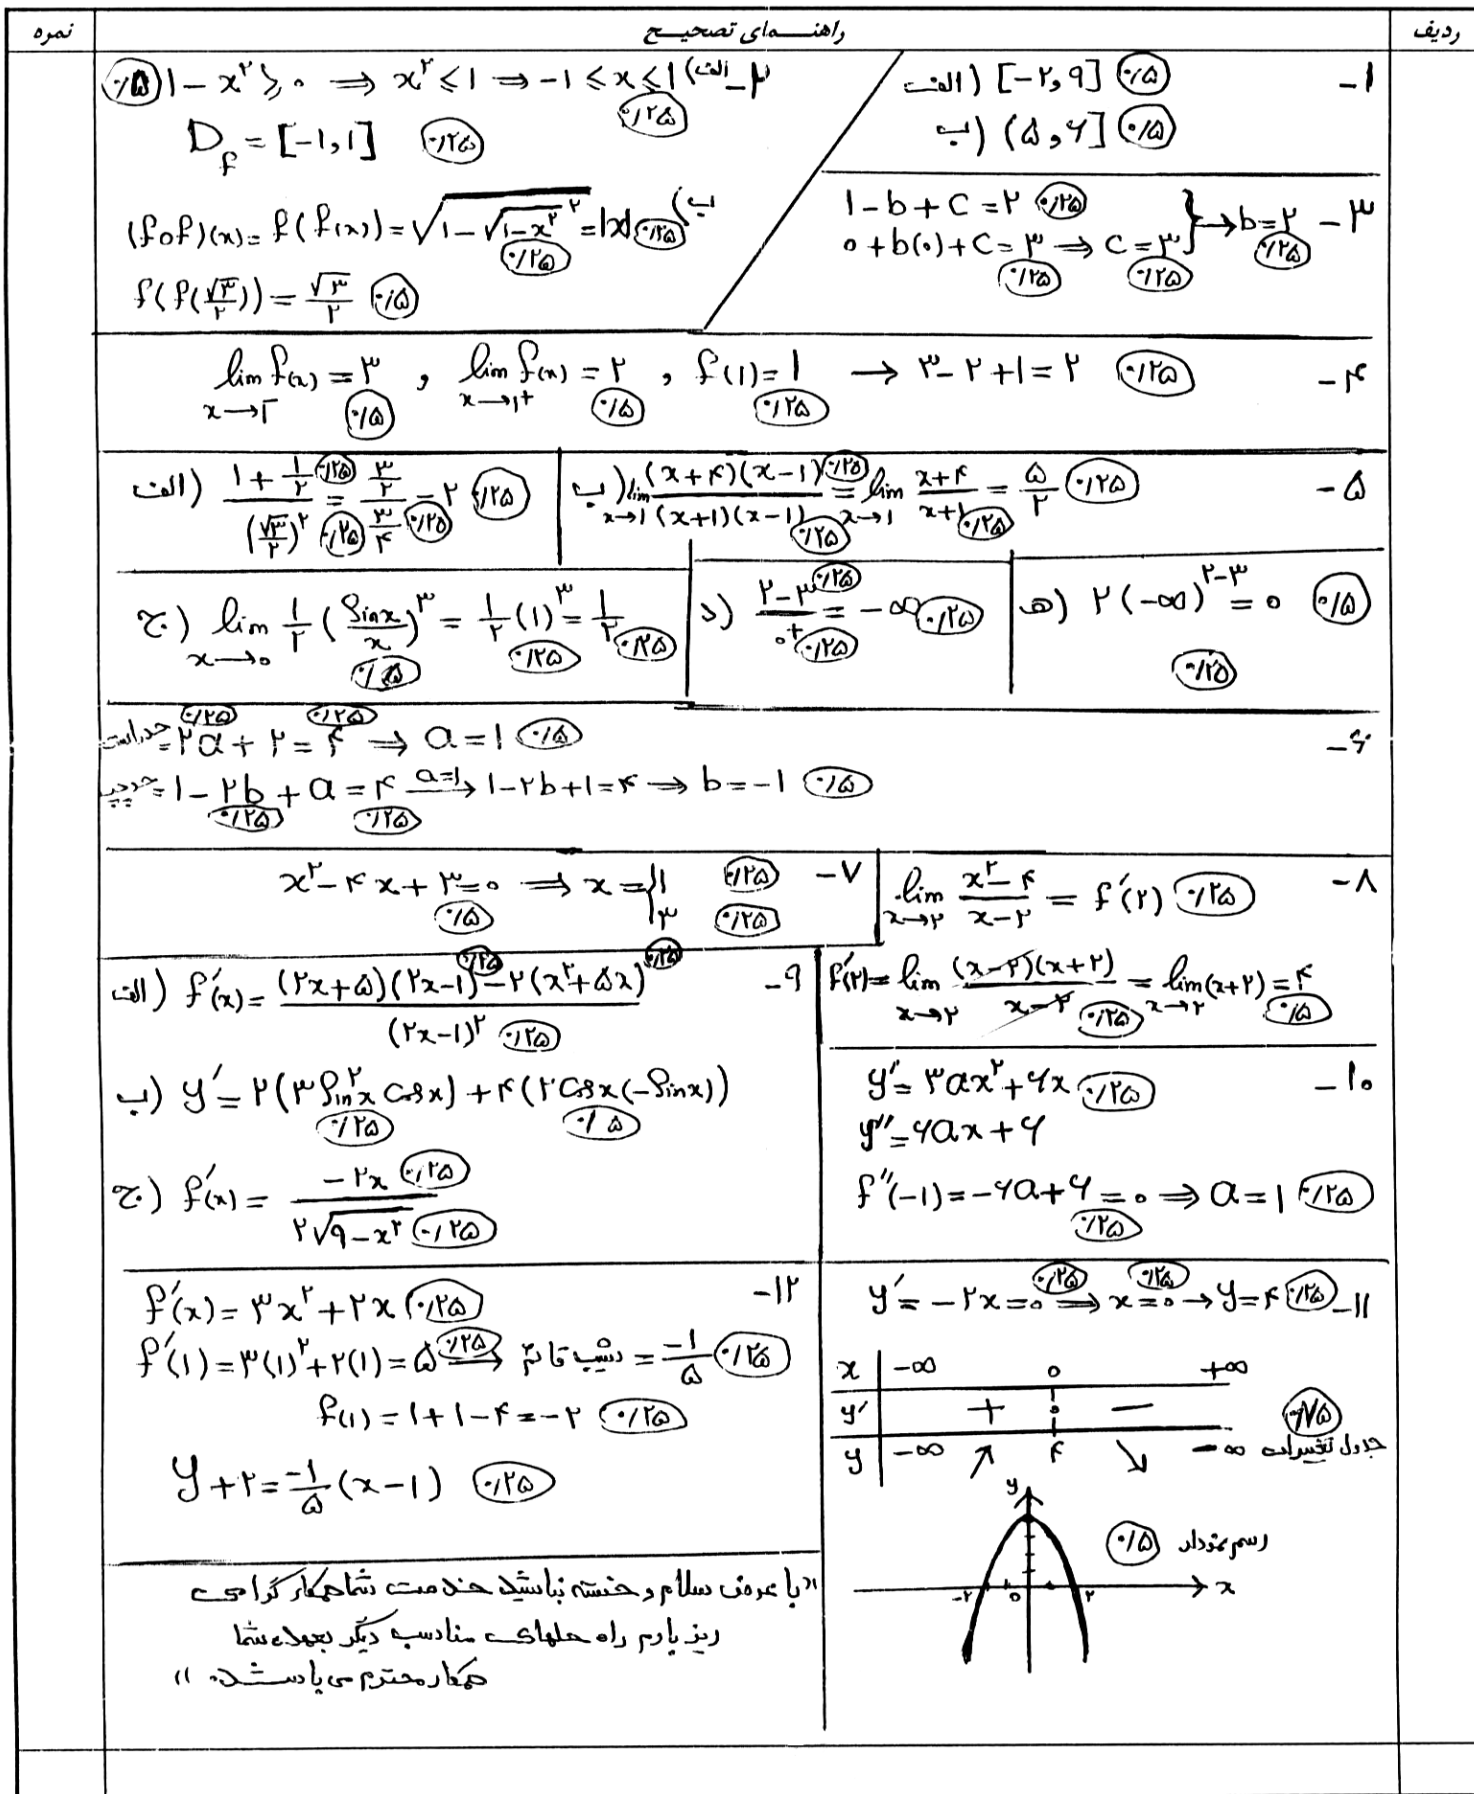 ردیف راهنمای تصحیح نمره
۱- الف) [-۲,۹] ۰/۵
ب) (۵,۶] ۰/۵
۲- الف) ۱ - x^۲ ≥ ۰ ⇒ x^۲ ≤ ۱ ⇒ -۱ ≤ x ≤ ۱ ۰/۵ ۰/۲۵
D_f = [-۱,۱] ۰/۲۵
ب) (fof)(x) = f(f(x)) = √(۱ - √(۱-x^۲)^۲) = |x| ۰/۲۵ ۰/۲۵
f(f(√۳/۲)) = √۳/۲ ۰/۵
۳- ۱ - b + c = ۲ ۰/۲۵
۰ + b(۰) + c = ۳ ⇒ c = ۳ } → b = ۲ ۰/۲۵ ۰/۲۵ ۰/۲۵
۴- lim f(x) = ۳ , lim f(x) = ۲ , f(۱) = ۱ → ۳ - ۲ + ۱ = ۲ ۰/۲۵
x→۱⁻ ۰/۵ x→۱⁺ ۰/۵ ۰/۲۵
۵- الف) (۱ + ۱/۲)/(√۳/۲)^۲ = (۳/۲)/(۳/۴) = ۲ ۰/۲۵ ۰/۲۵ ۰/۲۵ ۰/۲۵
ب) lim x→۱ (x+۴)(x-۱)/(x+۱)(x-۱) = lim x→۱ (x+۴)/(x+۱) = ۵/۲ ۰/۲۵ ۰/۲۵ ۰/۲۵ ۰/۲۵
ج) lim x→۰ ۱/۲ (Sinx/x)^۳ = ۱/۲ (۱)^۳ = ۱/۲ ۰/۵ ۰/۲۵ ۰/۲۵
د) (۲-۳)/۰⁺ = -∞ ۰/۲۵ ۰/۲۵ ۰/۲۵
هـ) ۲(-∞)^{۲-۳} = ۰ ۰/۵
۰/۲۵
۶- حد راست = ۲a + ۲ = ۴ ⇒ a = ۱ ۰/۵ ۰/۲۵ ۰/۲۵
حد چپ = ۱ - ۲b + a = ۴ →(a=۱) ۱ - ۲b + ۱ = ۴ → b = -۱ ۰/۵
۰/۲۵ ۰/۲۵
۷- x^۲ - ۴x + ۳ = ۰ ⇒ x = { ۱ ۰/۲۵
۳ ۰/۲۵
۰/۵
۸- lim x→۲ (x^۲ - ۴)/(x - ۲) = f'(۲) ۰/۲۵
f'(۲) = lim x→۲ (x-۲)(x+۲)/(x-۲) = lim x→۲ (x+۲) = ۴ ۰/۲۵ ۰/۵
۹- الف) f'(x) = ((۲x+۵)(۲x-۱) - ۲(x^۲+۵x))/(۲x-۱)^۲ ۰/۲۵ ۰/۲۵ ۰/۲۵
ب) y' = ۲(۳Sin^۲x Cosx) + ۴(۲Cosx(-Sinx))
۰/۲۵ ۰/۵
ج) f'(x) = -۲x/(۲√(۹-x^۲)) ۰/۲۵ ۰/۲۵
۱۰- y' = ۳ax^۲ + ۶x ۰/۲۵
y'' = ۶ax + ۶
f''(-۱) = -۶a + ۶ = ۰ ⇒ a = ۱ ۰/۲۵
۰/۲۵
۱۱- y' = -۲x = ۰ ⇒ x = ۰ → y = ۴ ۰/۲۵ ۰/۲۵ ۰/۲۵
x -∞ ۰ +∞
y' + ۰ - ۰/۷۵
y -∞ ↗ ۴ ↘ -∞ جدول تغییرات
رسم نمودار ۰/۵
y
-۲ ۰ ۲ x
۱۲- f'(x) = ۳x^۲ + ۲x ۰/۲۵
f'(۱) = ۳(۱)^۲ + ۲(۱) = ۵ ⇒ شیب قائم = -۱/۵ ۰/۲۵ ۰/۲۵
f(۱) = ۱ + ۱ - ۴ = -۲ ۰/۲۵
y + ۲ = -۱/۵ (x - ۱) ۰/۲۵
"با عرض سلام و خسته نباشید خدمت شما همکار گرامی
ریز بارم راه حلهای مناسب دیگر بعهده شما
همکار محترم می باشد."